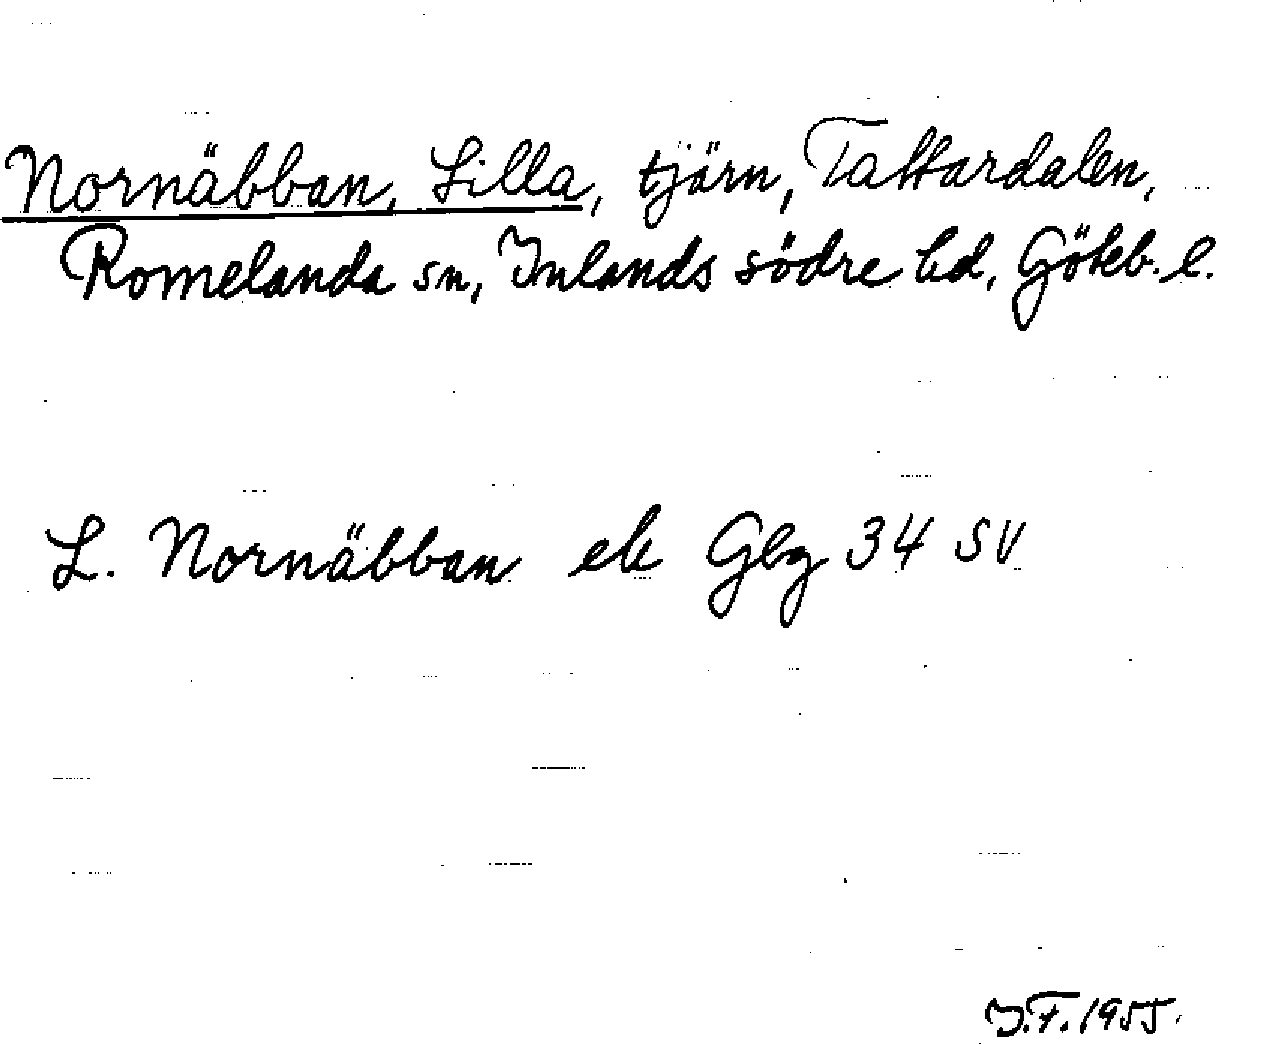 Nornäbban, Lilla, tjärn, Tattardalen,
Romelanda sn, Inlands södre hd, Göteb. l.
L. Nornäbban ek Gbg 34 SV
J.F. 1955.